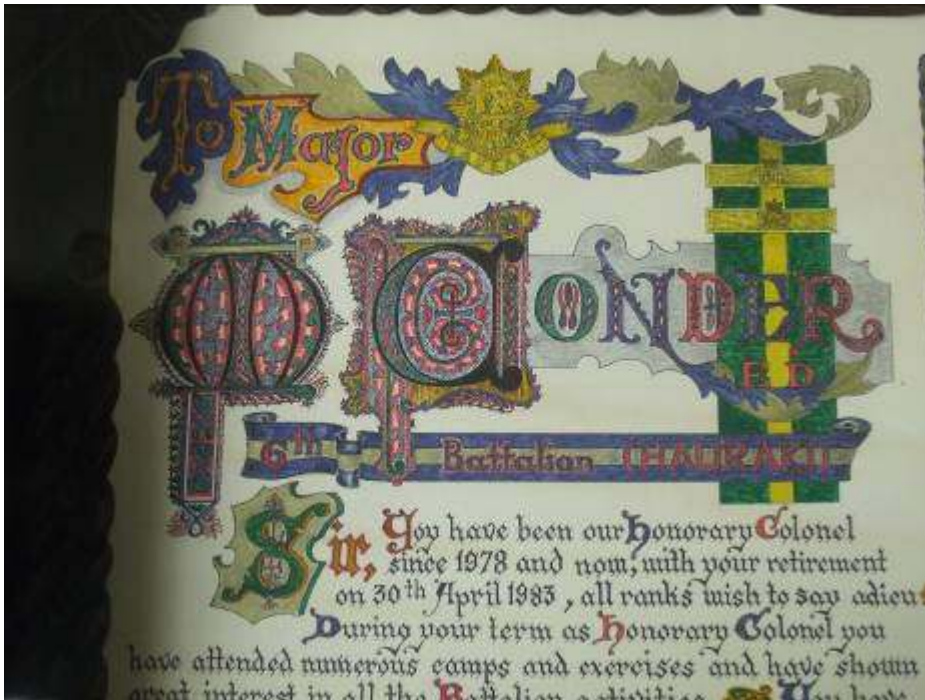 To Major
M CONDER
E D
6TH Battalion (HAURAKI)
Sir, You have been our Honorary Colonel
since 1978 and now, with your retirement
on 30th April 1983, all ranks wish to say adieu
During your term as Honorary Colonel you
have attended numerous camps and exercises and have shown
great interest in all the Battalion activities